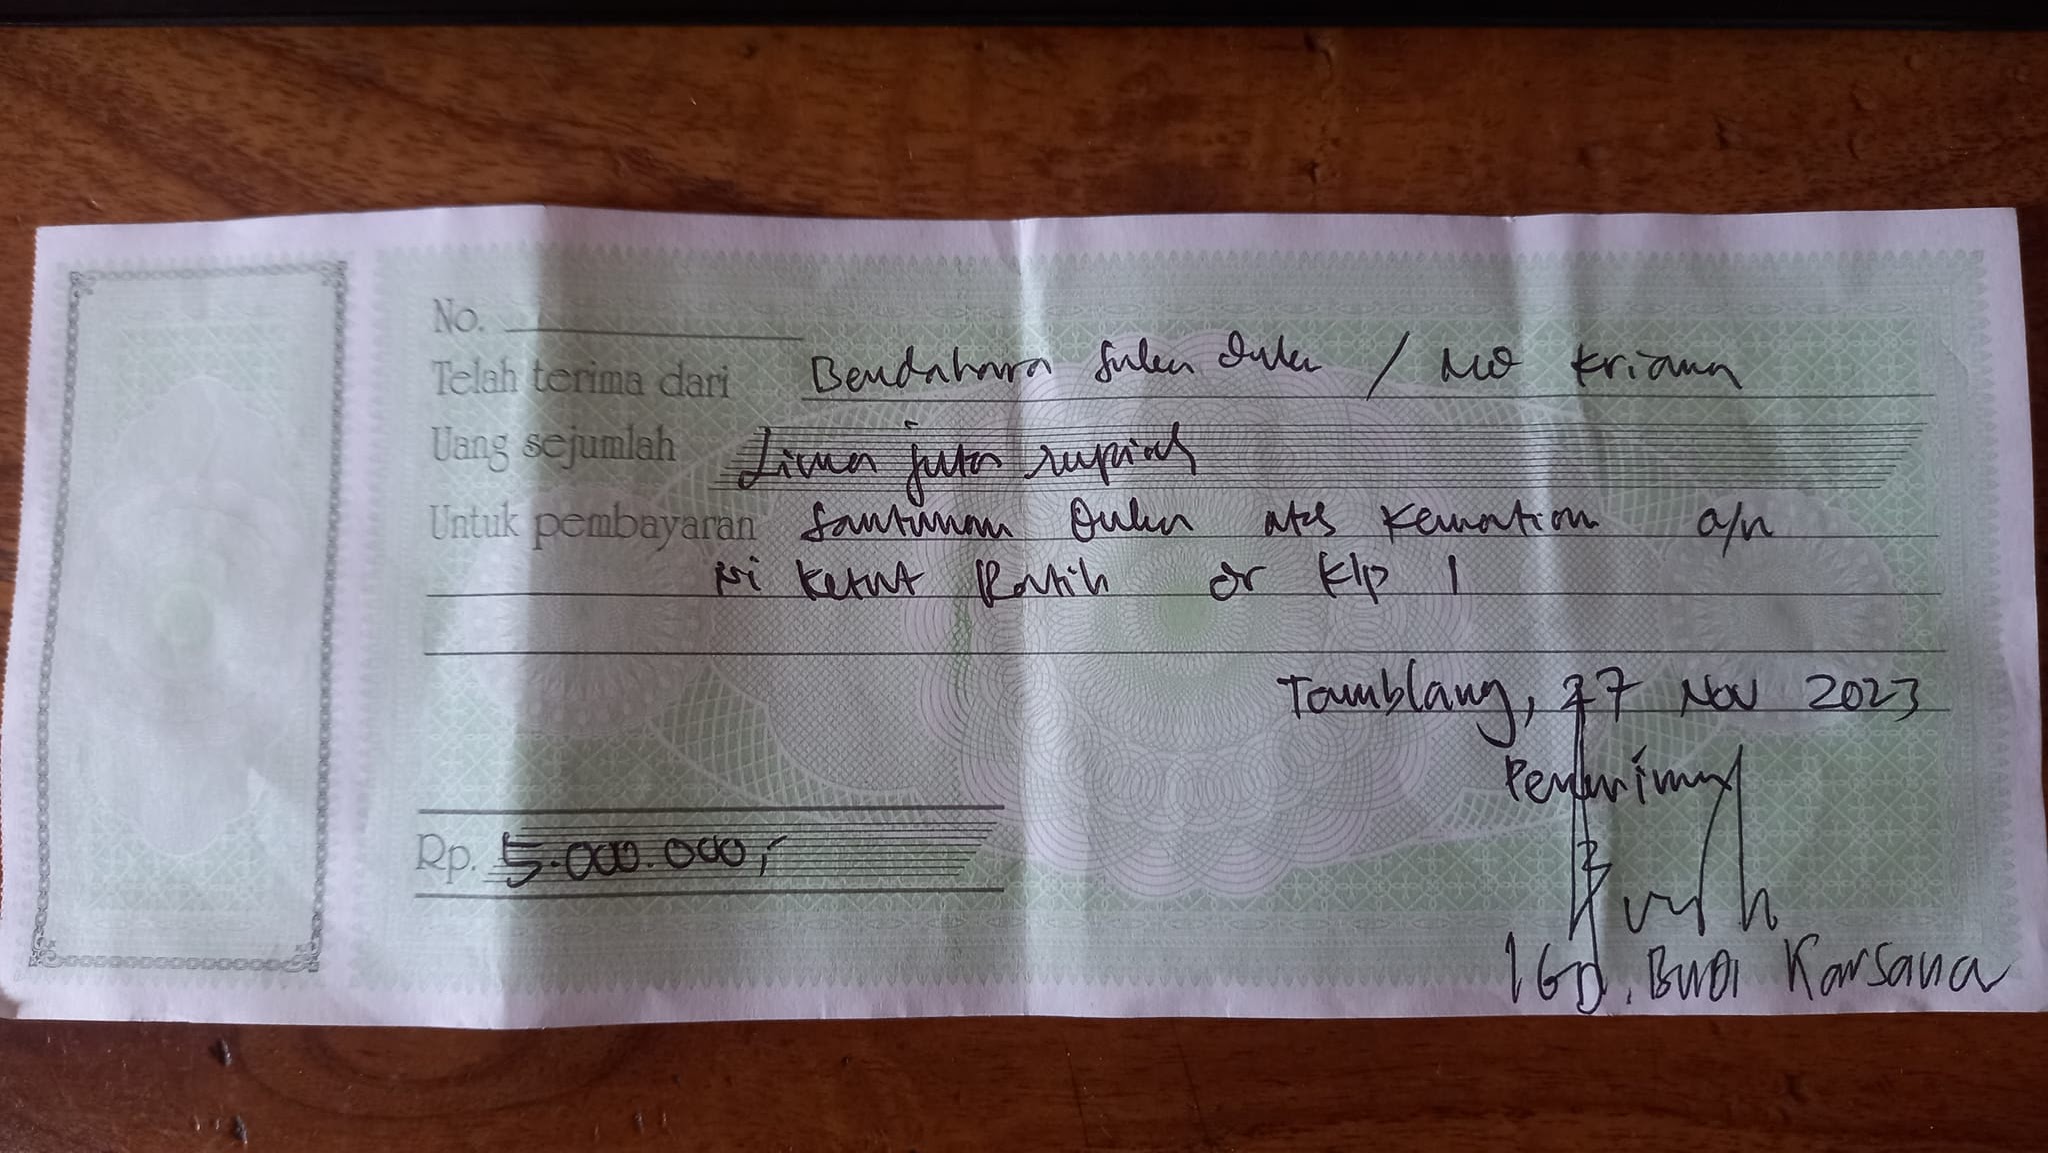 No.
Telah terima dari Bendahara Suka Duka / Md Kriana
Uang sejumlah Lima juta rupiah
Untuk pembayaran Santunan Duka atas Kematian a/n
Ni Ketut Ratih dr Klp 1
Tamblang, 27 Nov 2023
Penerima
Rp. 5.000.000,-
I GD. Budi Karsana